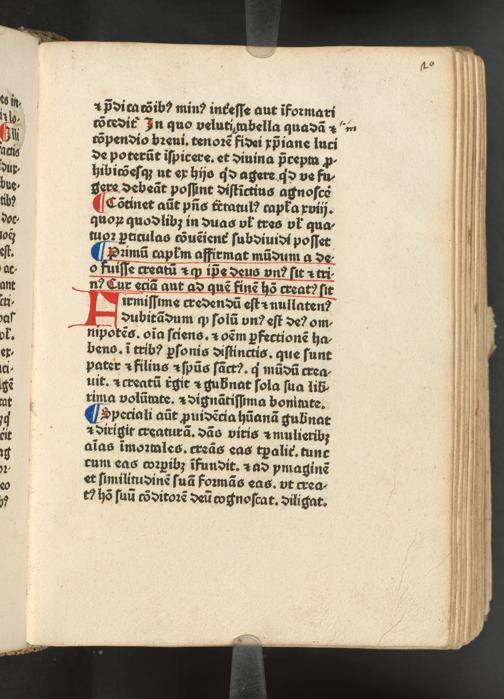 ⁊ p̄dicatōib? min? int̄esse aut īformari
cōcedit᷑ In quo veluti tabella quadā ⁊
cōpendio breui. tenorē fidei xp̄iane luci
de poterūt īspicere. et diuina p̄cepta ꝓ-
hibitōesqꝫ ut ex hijs qd̄ agere qd̄ ve fu
gere debeāt possint distīctius agnosc̄e
Cōtinet aūt pn̄s tr̄tatul? capl̄a xviij.
quoꝝ quodlibꝫ in duas vl̓ tres vl̓ qua
tuor ꝑticulas cōuēient᷑ subdiuidi posset
Primū capl̄m affirmat mūdum a de-
o fuisse creatū ⁊ ꝙ ip̄e deus vn? sit ⁊ tri-
n? Cur eciā aut ad quē finē hō creat? sit
Firmissime credendū est ⁊ nullaten?
dubitādum ꝙ solū vn? est de? om-
nipotēs. oīa sciens. ⁊ oēm ꝑfectionē ha-
bens. ī trib? ꝑsonis distinctis. que sunt
pater ⁊ filius ⁊ sp̄us sāct?. q̇ mūdū crea-
uit. ⁊ creatū r̄git ⁊ gub̄nat sola sua lib̄-
rima volūtate. ⁊ dignātissima bonitate.
Speciali aūt ꝓuidēcia hūanā gub̄nat
⁊ dirigit creaturā. dās viris ⁊ mulieribꝫ
aīas īmortales. creās eas tꝑalit᷑. tunc
cum eas corꝑibꝫ īfundit. ⁊ ad ymaginē
et similitudinē suā formās eas. vt crea-
t? hō suū cōditorē deū cognoscat. diligat.